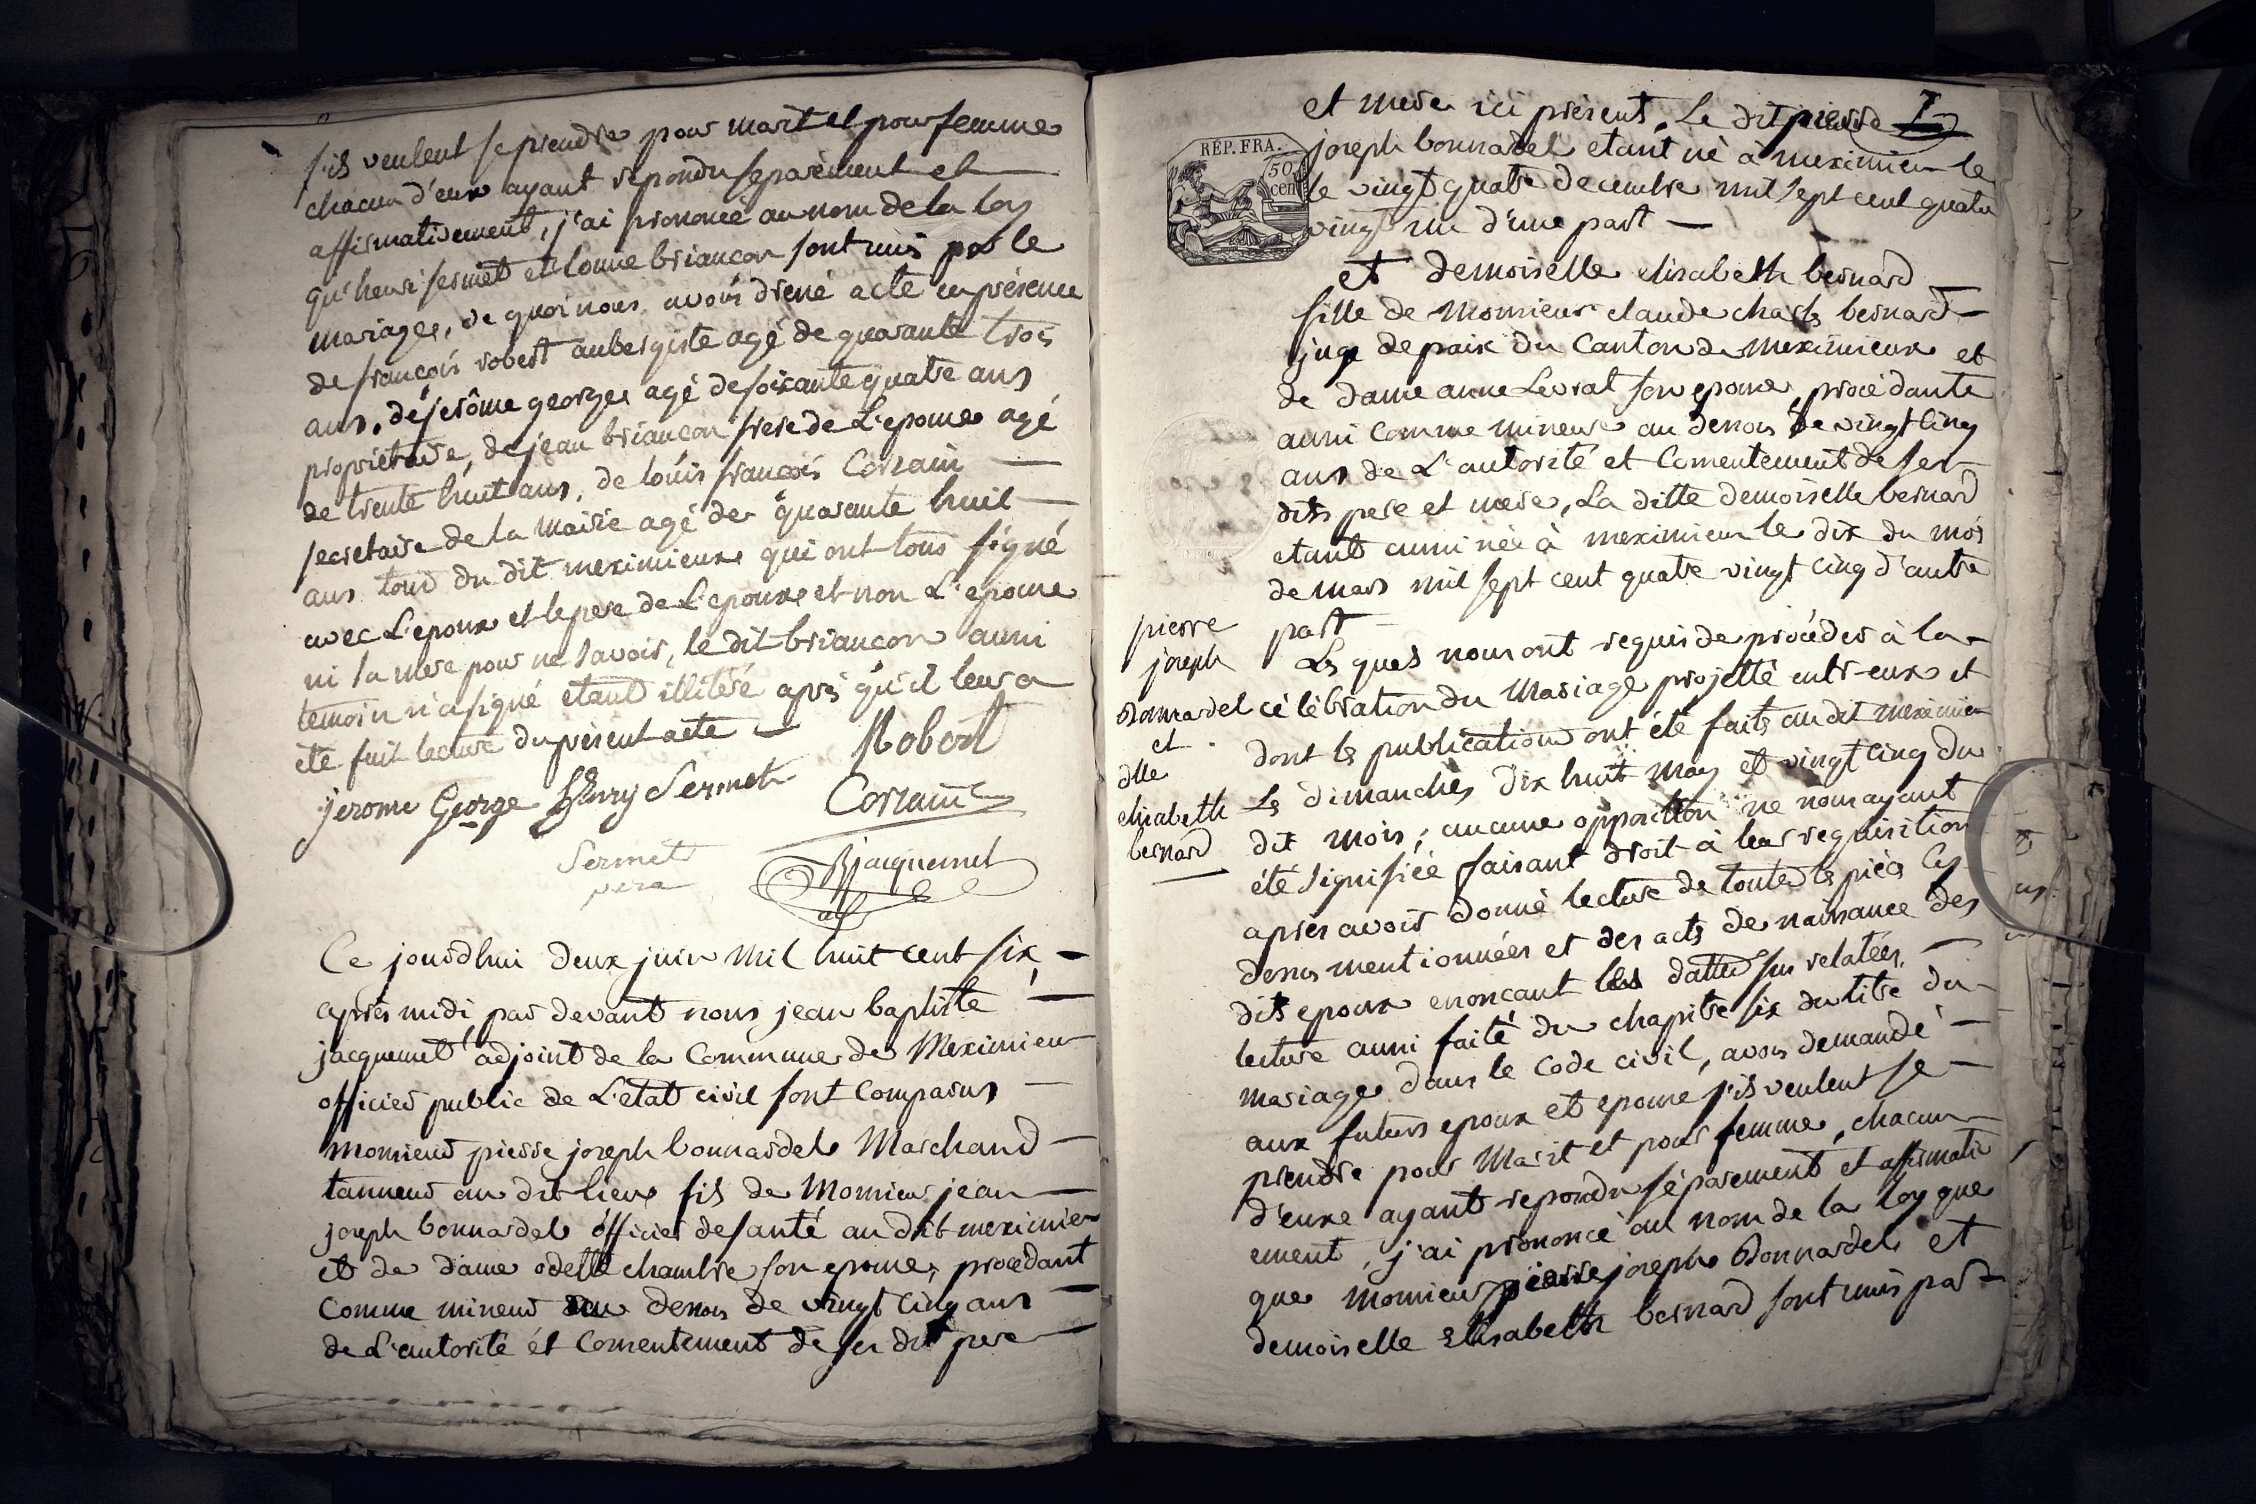 s'ils veulent se prendre pour marit et pour femme
chacun d'eux ayant repondu separément et
affirmativement, j'ai prononcé au nom de la loy
qu'henri sermet et lonne briancon sont unis par le
mariage, de quoi nous avons dressé acte en présence
de françois robert aubergiste agé de quarante trois
ans, de jerôme george agé de soixante quatre ans
propriétaire, de jean briancon frere de L'epouse agé
de trente huit ans, de loüis françois Corzain
secretaire de la mairie agé de quarante huit
ans tous du dit meximieux qui ont tous signé
avec L'epoux et le pere de L'epoux et non L'epouse
ni sa mere pour ne savoir, le dit briancon aussi
temoin n'a signé etant illitéré après qu'il leur a
été fait lecture du présent acte
Robert
jerome George henry Sermet
Corzain
Sermet
pere
Bjacquemet
adj
Ce jourdhui deux juin mil huit cent six,
après midi par devant nous jean baptiste
jacquemet adjoint de la Commune de Meximieux
officier public de L'état civil sont comparus
monsieur pierre joseph bonnardel Marchand
tanneur au dit lieu fils de Monsieur jean
joseph bonnardel officier de santé au dit meximieux
et de dame odette chambre son epouse, procédant
comme mineur au dessous de vingt cinq ans
de L'autorité et consentement de ses dit pere
et mere ici présents, Le dit pierre
RÉP. FRA.
50 cen
joseph bonnardel etant né à meximieu le
le vingt quatre decembre mil sept cent quatre
vingt un d'une part
et demoiselle elisabeth bernard
fille de Monsieur claude charles bernard
juge de paix du Canton de meximieux et
de dame anne Levrat son epouse, procédante
aussi comme mineure au dessous de vingt cinq
ans de L'autorité et Consentement de ses
dits pere et mere, La ditte demoiselle bernard
etant aussi née à meximieu le dix du mois
de mars mil sept cent quatre vingt cinq d'autre
part
pierre
joseph
Bonnardel
et
dlle
elisabeth
bernard
Les quels nous ont requis de procéder à la
célébration du Mariage projetté entr-eux et
dont les publications ont été faits au dit meximieu
Les dimanches dix huit may et vingt cinq du
dit mois; aucune opposition ne nous ayant
été signifiée faisant droit à leur requisition
après avoir donné lecture de toutes les pièces cy
dessus mentionnées et des acts de naissance des
dits epoux enoncant les dattes sus relatées,
lecture aussi faite du chapitre six du titre du
mariage dans le Code civil, avons demandé
aux futurs epoux et epouse s'ils veulent se
prendre pour Marit et pour femme, chacun
d'eux ayant repondu séparement et affirmativ
ement, j'ai prononcé au nom de la loy que
que monsieur pierre joseph Bonnardel et
demoiselle Elisabeth bernard sont unis par